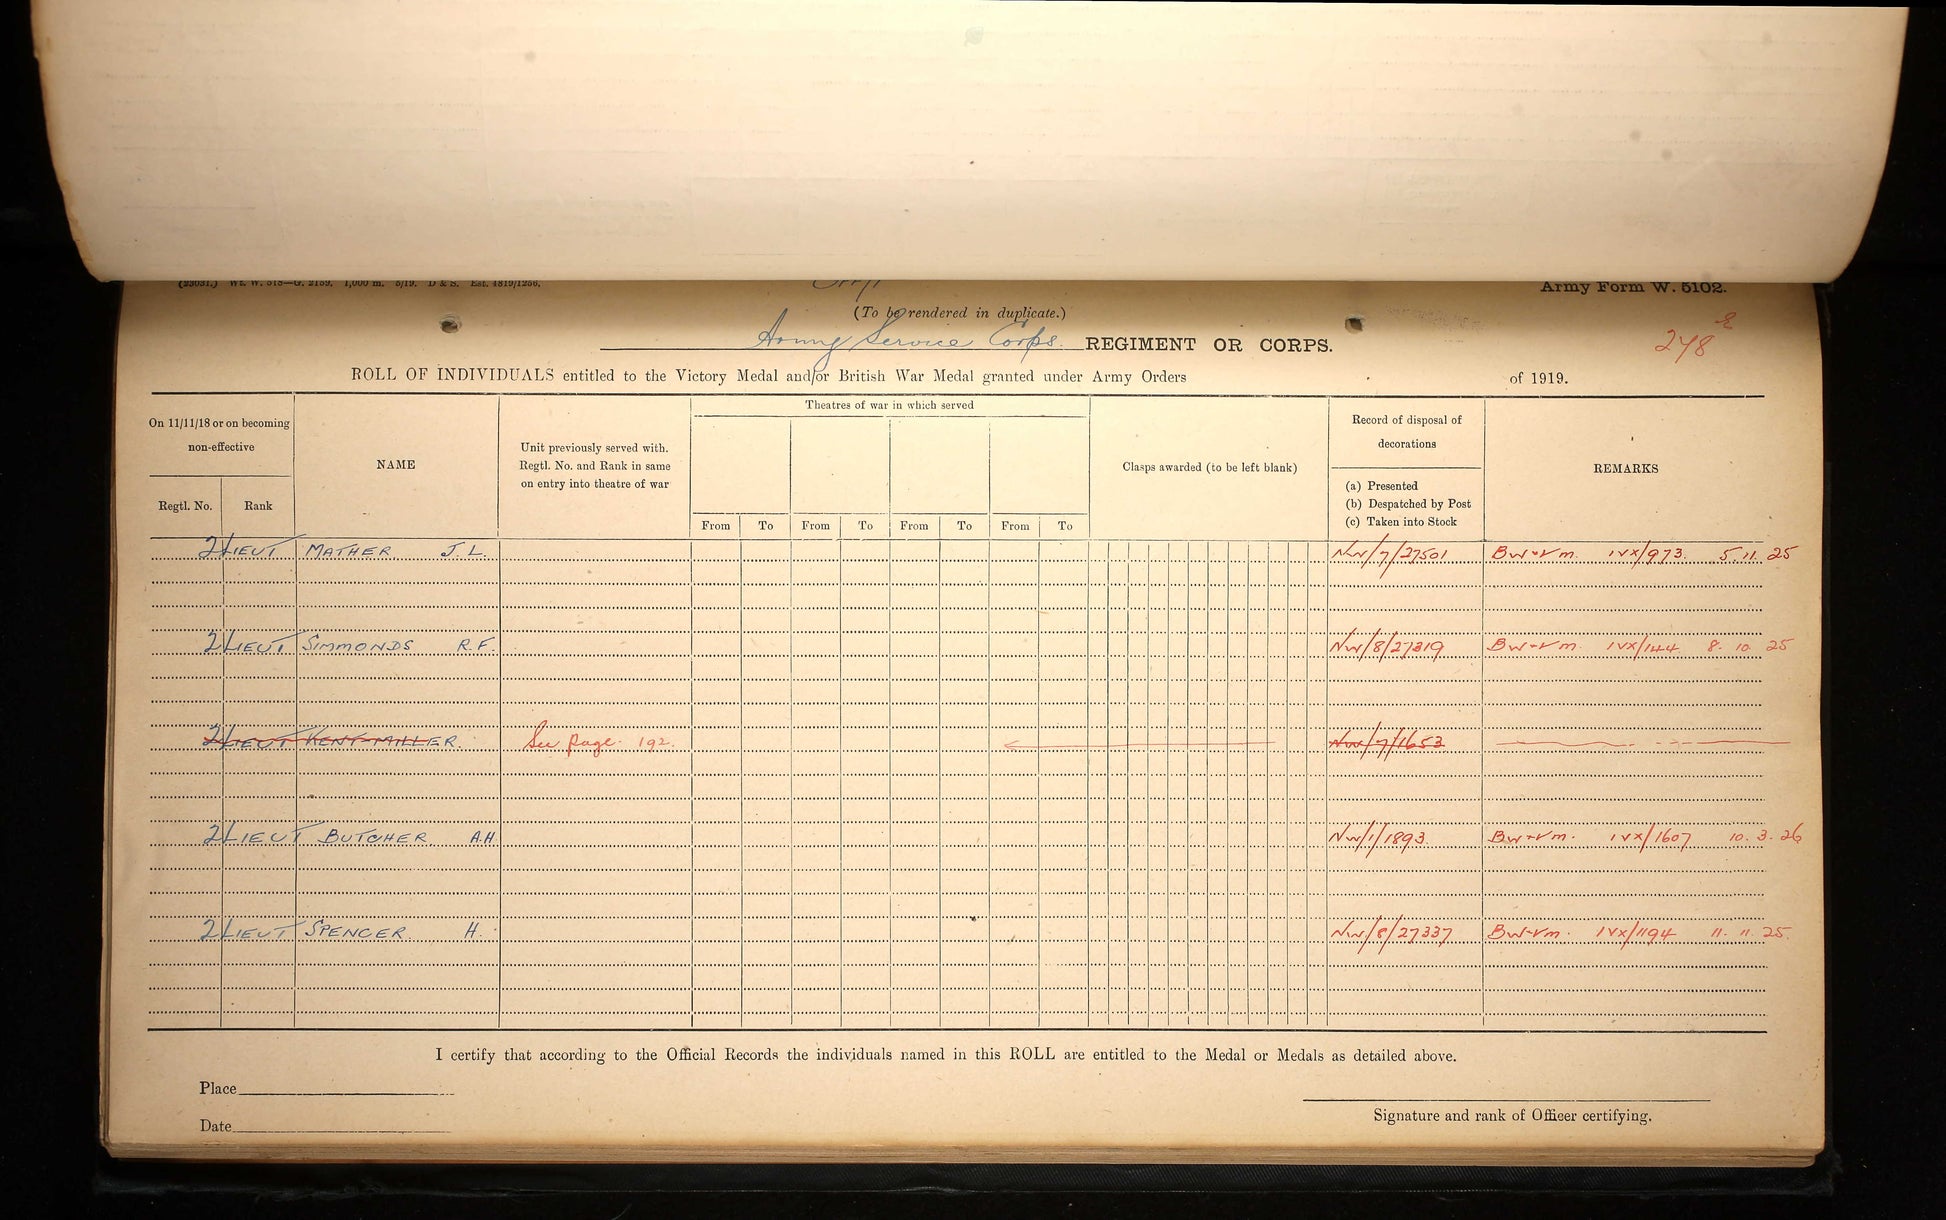 (23031.) Wt. W. 513—G. 2159. 1,000 m. 5/19. D & S. Est. 1819/1256.
Army Form W. 5102.
(To be rendered in duplicate.)
Army Service Corps. REGIMENT OR CORPS.
278
ROLL OF INDIVIDUALS entitled to the Victory Medal and/or British War Medal granted under Army Orders of 1919.
On 11/11/18 or on becoming non-effective
Regtl. No. Rank
NAME
Unit previously served with.
Regtl. No. and Rank in same
on entry into theatre of war
Theatres of war in which served
From To From To From To From To
Clasps awarded (to be left blank)
Record of disposal of
decorations
(a) Presented
(b) Despatched by Post
(c) Taken into Stock
REMARKS
2/LIEUT MATHER J. L. NW/7/27501 BW+VM. IVX/973. 5.11.25
2/LIEUT SIMMONDS R.F. NW/8/27319 BW+VM. IVX/144 8.10.25
2/LIEUT KENT-MILLER. See page 192. NW/7/1653
2/LIEUT BUTCHER A.H NW/1/1893. BW+VM. IVX/1607 10.3.26
2/LIEUT SPENCER. H. NW/8/27337 BW+VM. IVX/1194 11.11.25.
I certify that according to the Official Records the individuals named in this ROLL are entitled to the Medal or Medals as detailed above.
Place
Date
Signature and rank of Officer certifying.